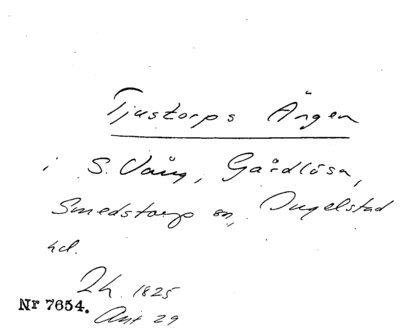 Tjustorps Ängen
i S. Vång, Gårdlösa,
Smedstorp sn, Ingelstad
hd.
2h. 1825
Nr 7654.
Ant 29